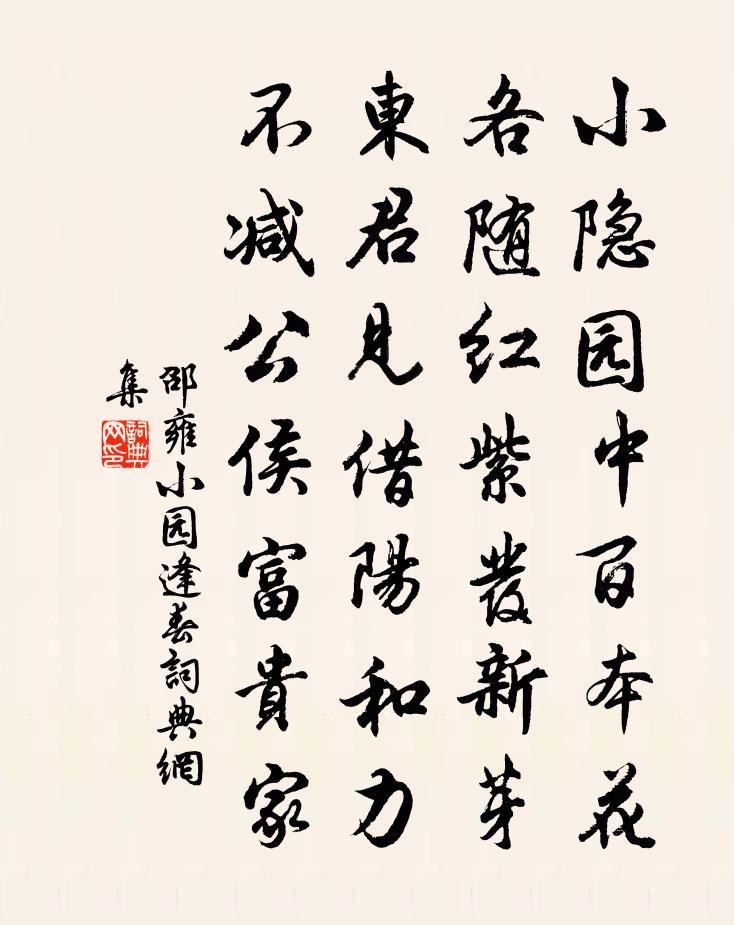 小隐园中百本花
各随红紫發新芽
東君見借陽和力
不减公侯富貴家
邵雍小园逢春詞典網
集
詞典
网印